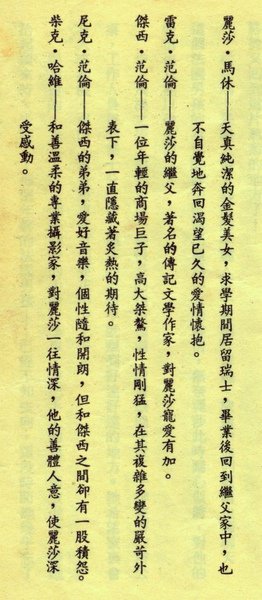 麗莎·馬休——天真純潔的金髮美女，求學期間居留瑞士，畢業後回到繼父家中，也
不自覺地奔回渴望已久的愛情懷抱。
雷克·范倫——麗莎的繼父，著名的傳記文學作家，對麗莎寵愛有加。
傑西·范倫——一位年輕的商場巨子，高大桀驁，性情剛猛，在其複雜多變的嚴苛外
表下，一直隱藏著炙熱的期待。
尼克·范倫——傑西的弟弟，愛好音樂，個性隨和開朗，但和傑西之間卻有一股積怨。
柴克·哈維——和善溫柔的專業攝影家，對麗莎一往情深，他的善體人意，使麗莎深
受感動。